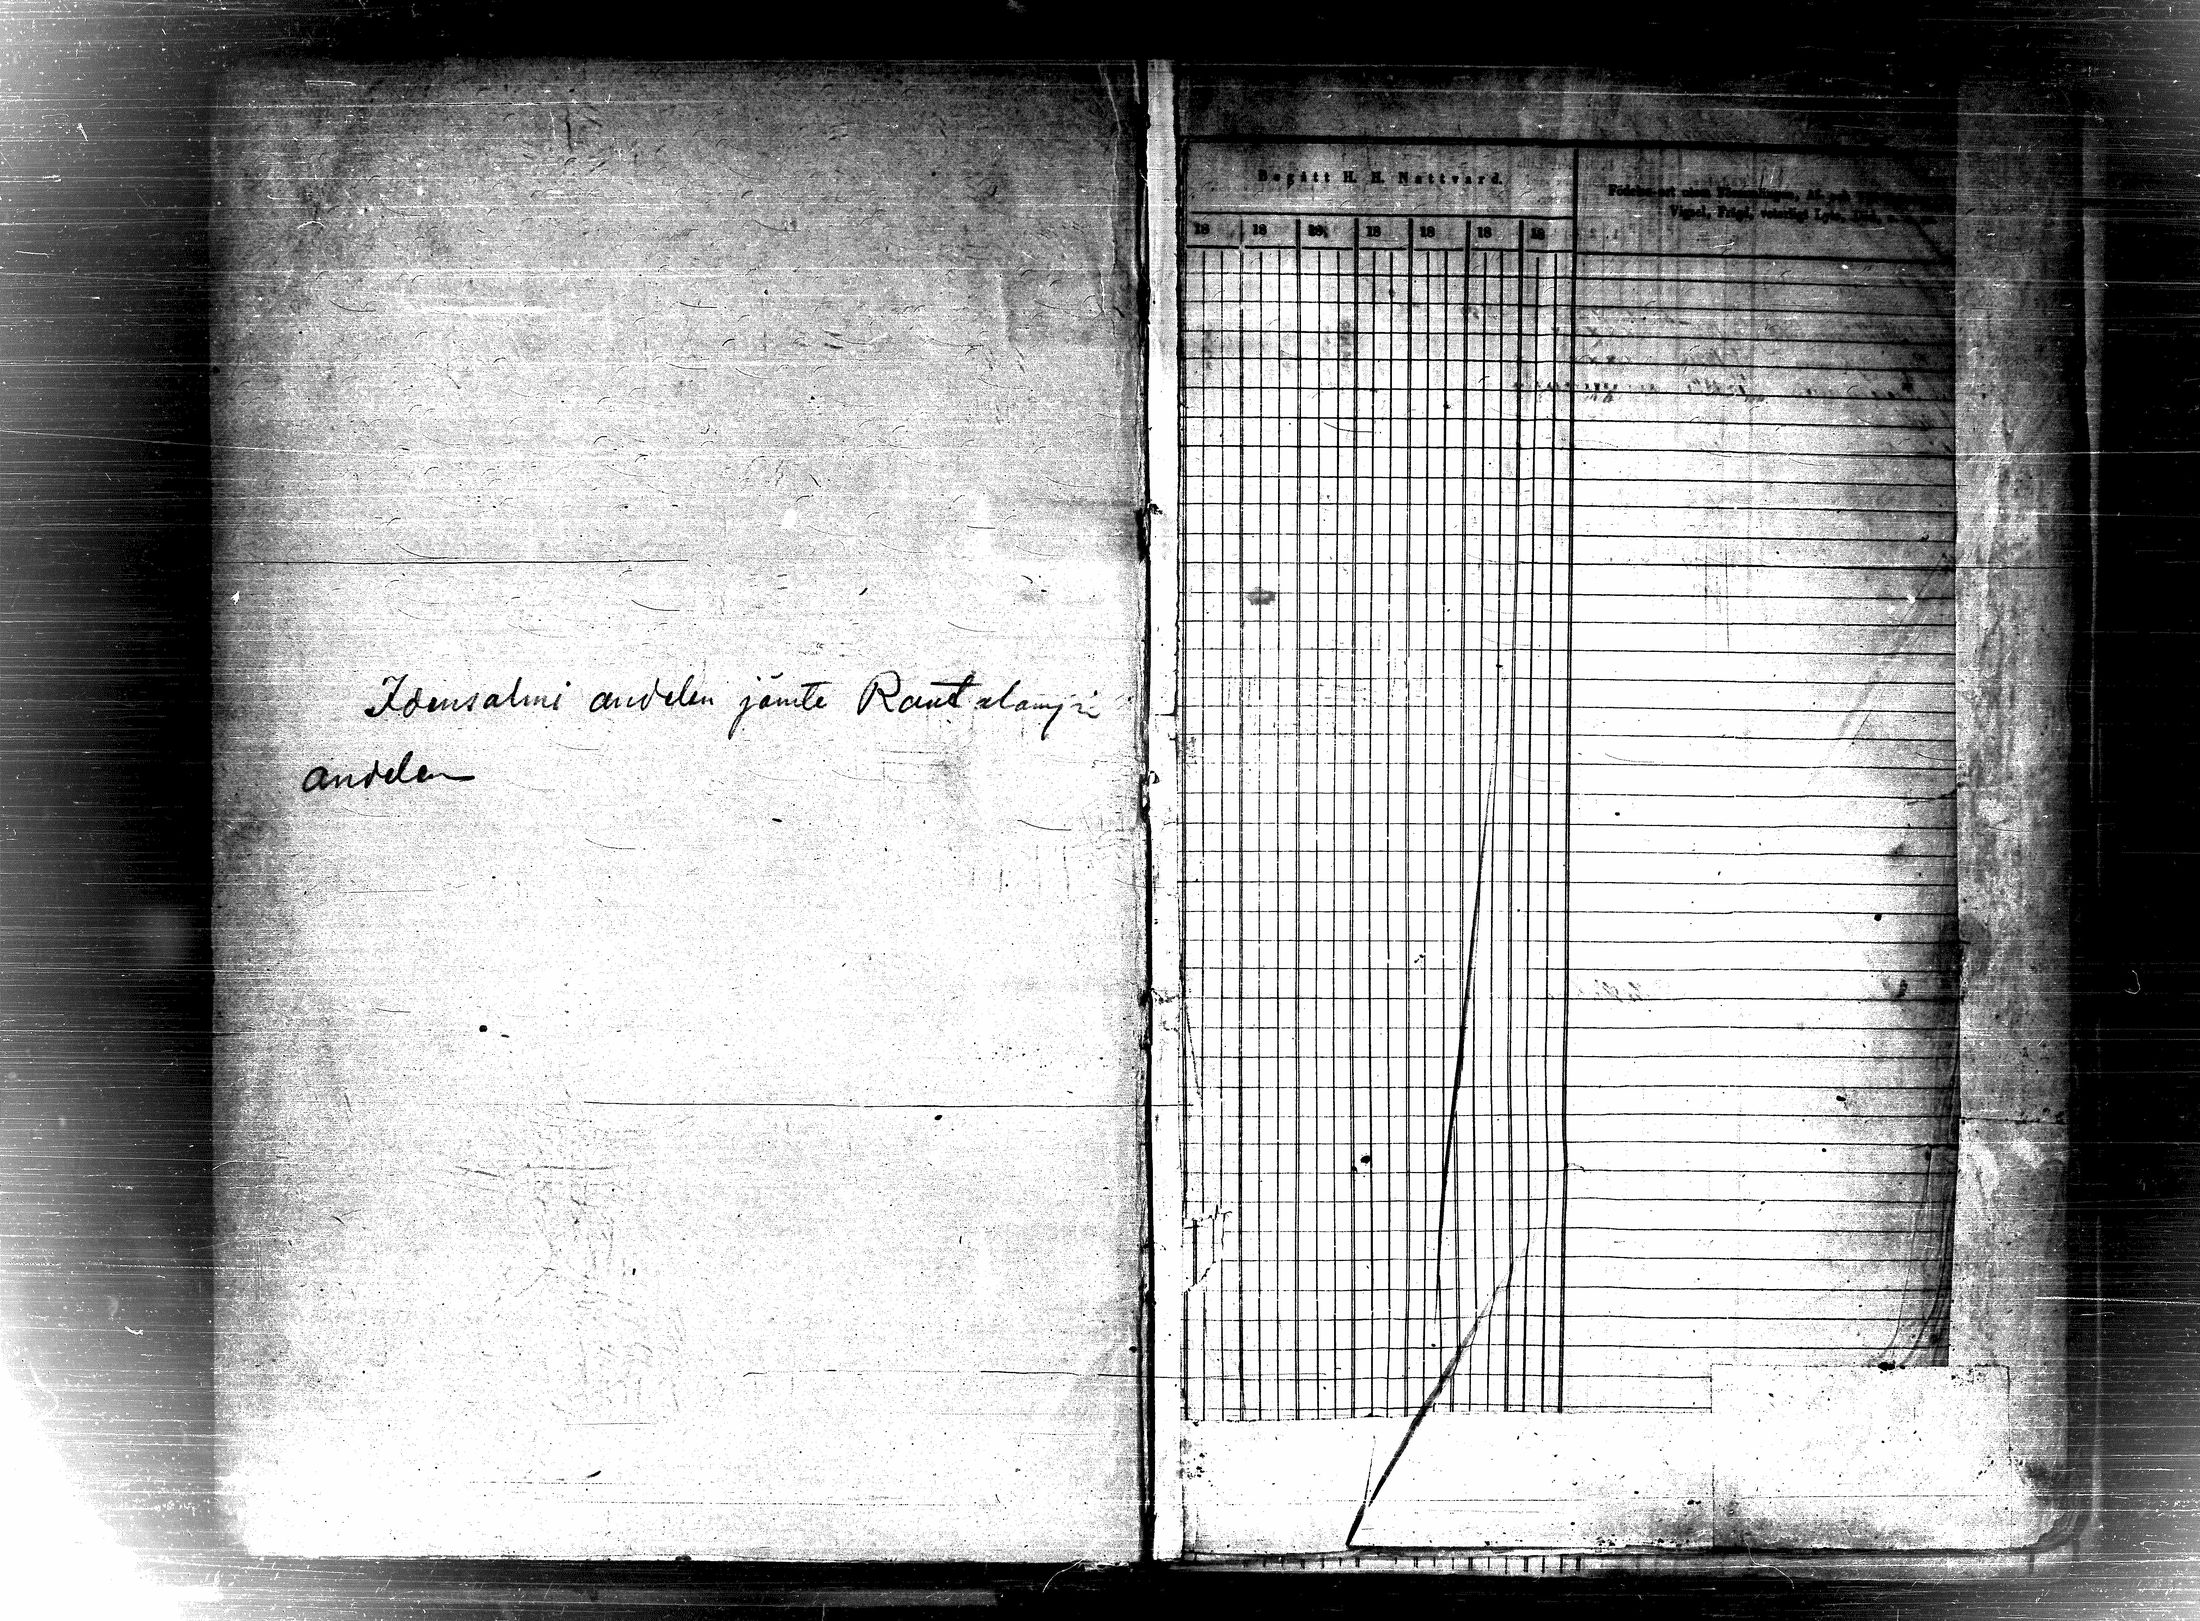 Idensalmi andelen jämte Rantalampi
andelen
Begått H. H. Nattvard.
Födelse-ort utom Församlingen, Af- och
Vigsel, Frägd, Lyte,
18 18 18 18 18 18 18